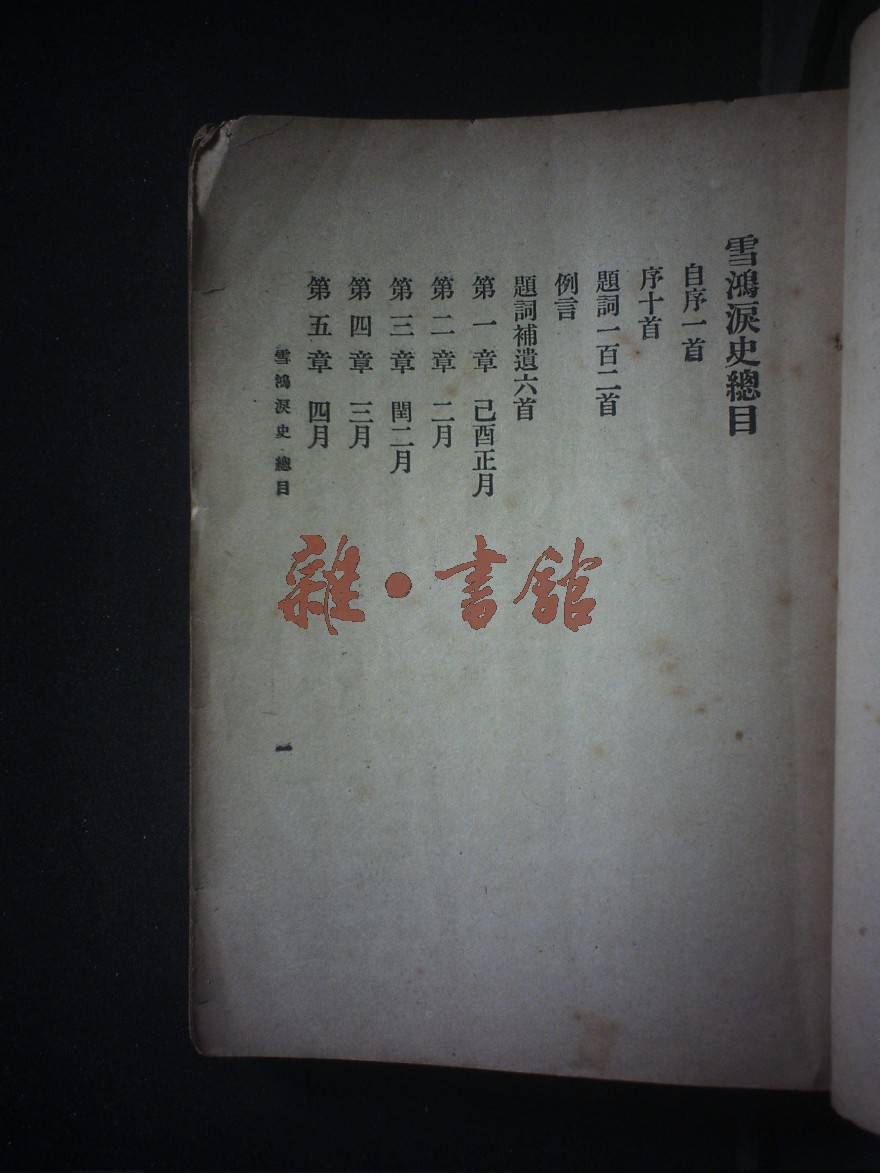 雪鴻淚史總目
自序一首
序十首
題詞一百二首
例言
題詞補遺六首
第一章 己酉正月
第二章 二月
第三章 閏二月
第四章 三月
第五章 四月
雪鴻淚史 總目
一
雜·書館